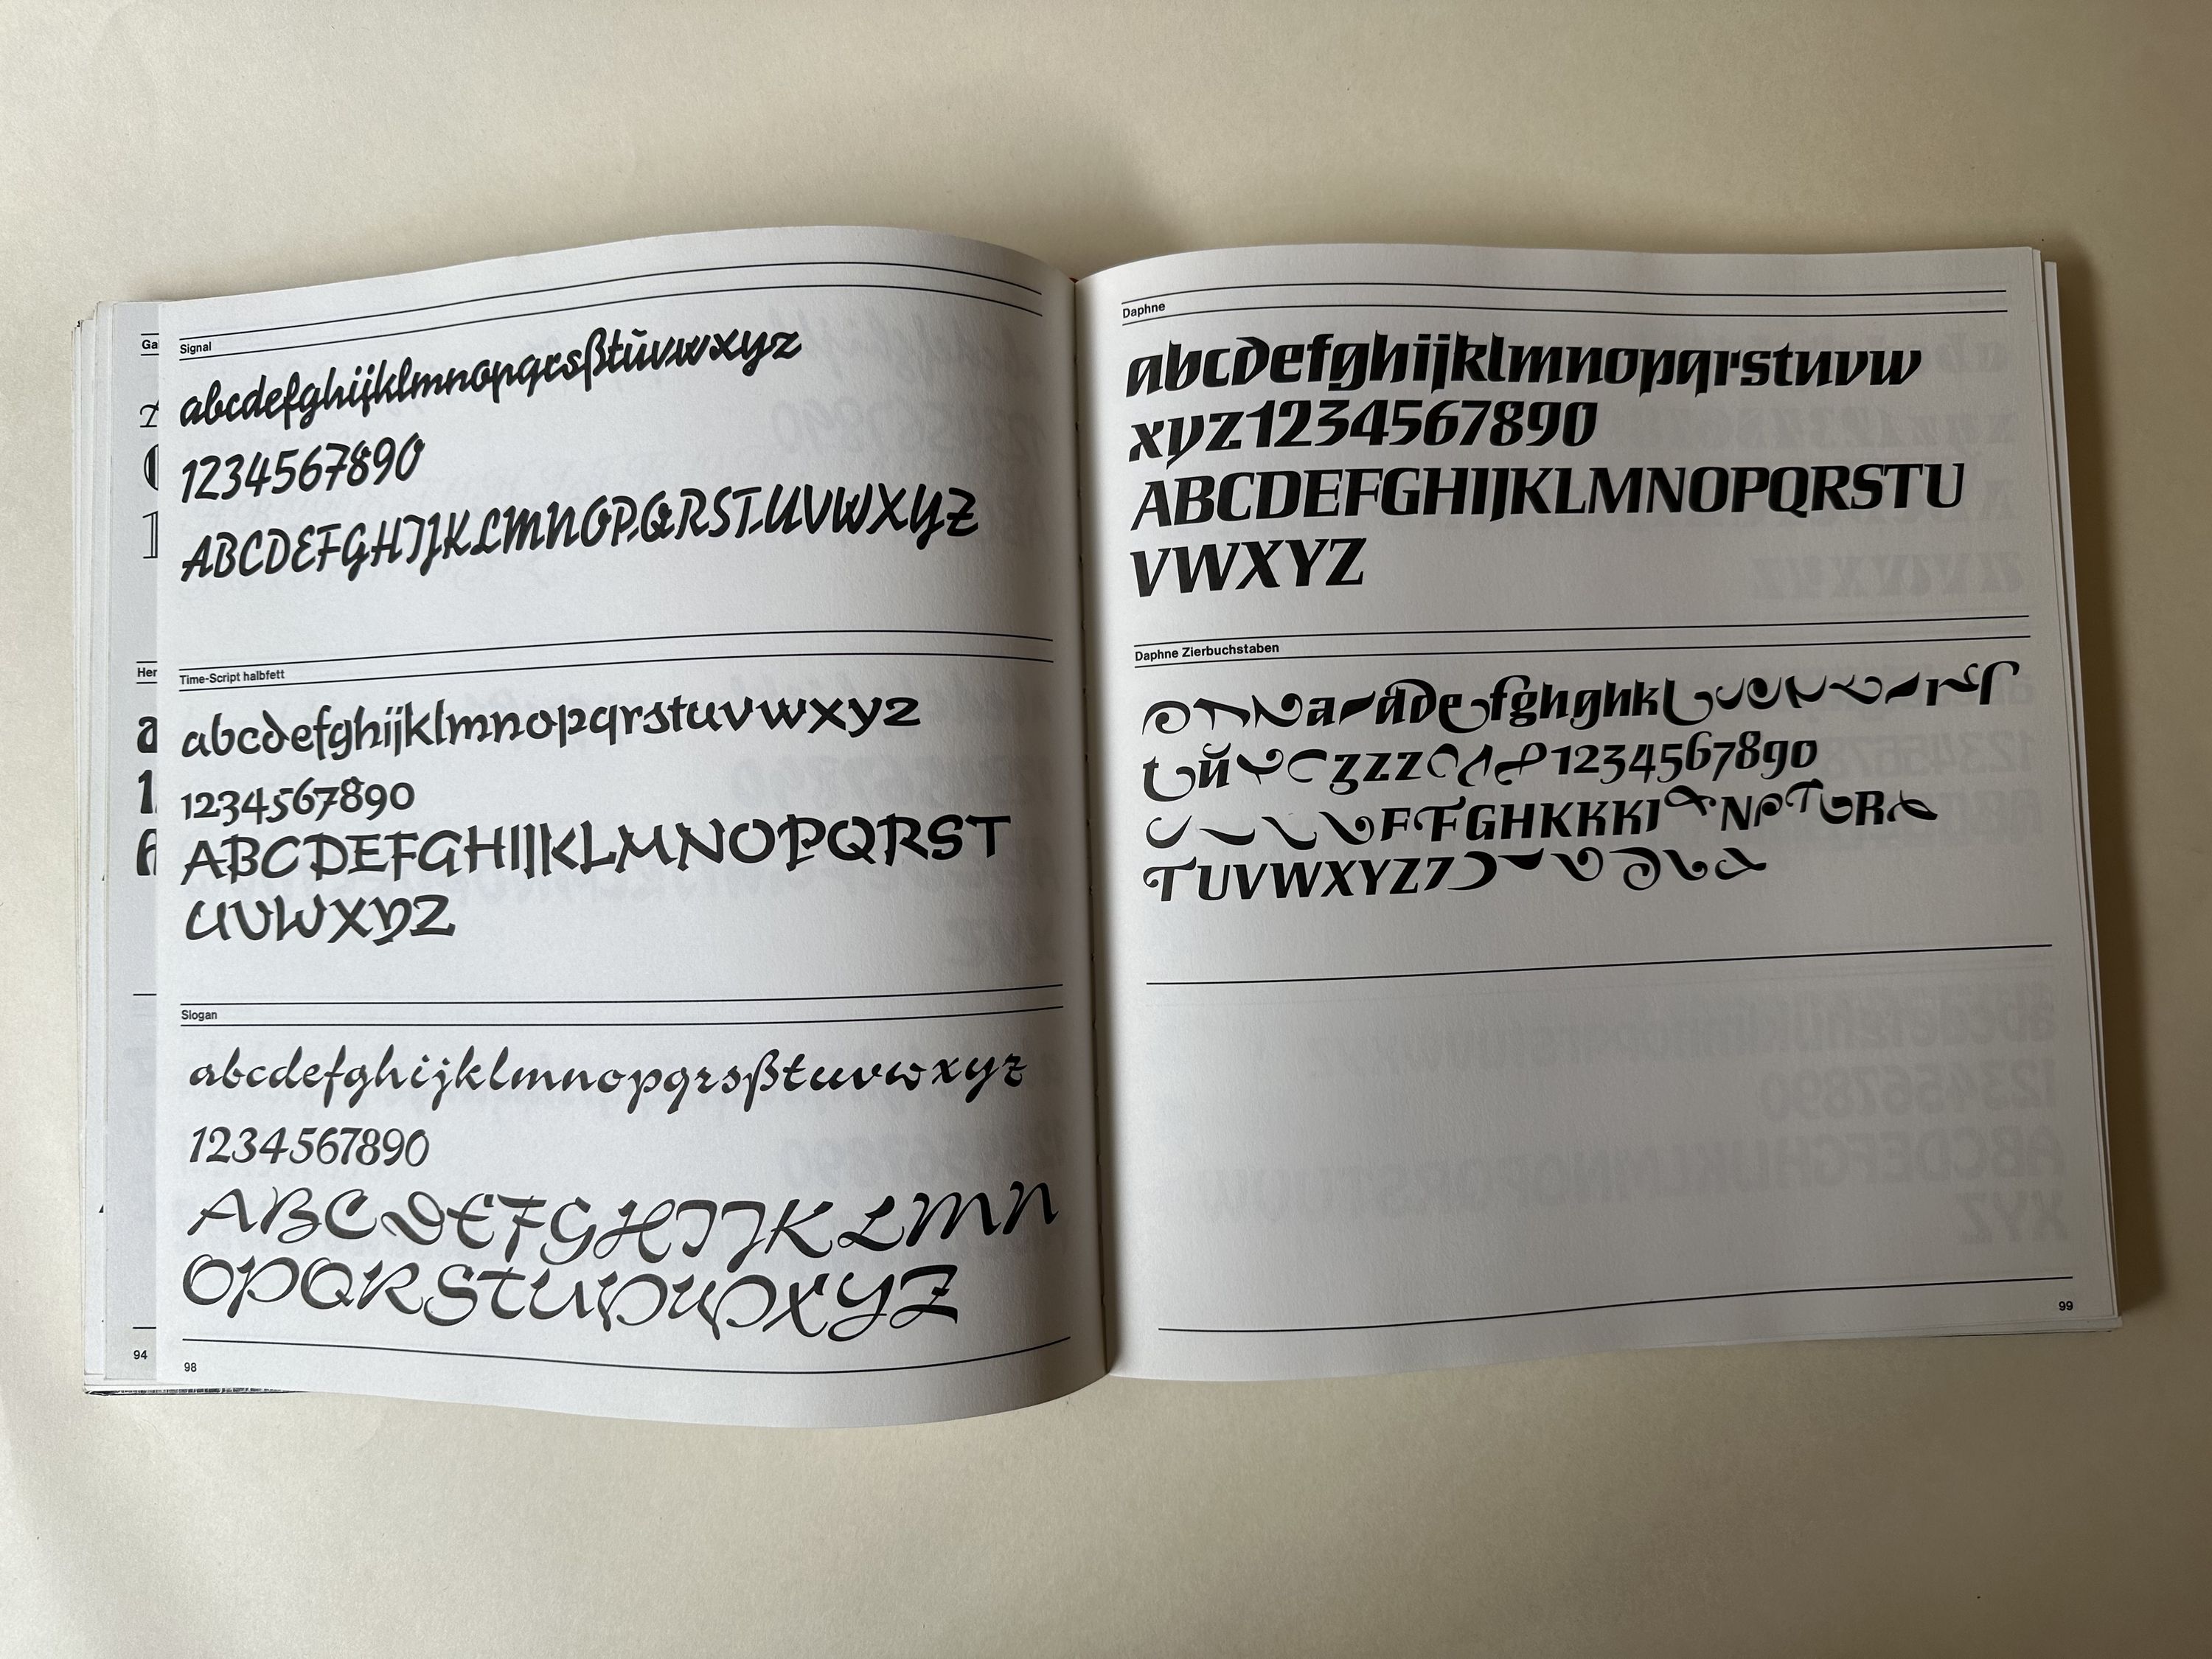 Ga
Her
94
Signal
abcdefghijklmnopqrsßtŭvwxyz
1234567890
ABCDEFGHIJKLMNOPQRSTUVWXYZ
Time-Script halbfett
abcdefghijklmnopqrstuvwxyz
1234567890
ABCDEFGHIJKLMNOPQRST
UVWXYZ
Slogan
abcdefghijklmnopqrsßtuvwxyz
1234567890
ABCDEFGHIJKLMN
OPQRSTUVWXYZ
98
Daphne
abcdefghijklmnopqrstuvw
xyz1234567890
ABCDEFGHIJKLMNOPQRSTU
VWXYZ
Daphne Zierbuchstaben
zzz 1234567890
TUVWXYZ
99